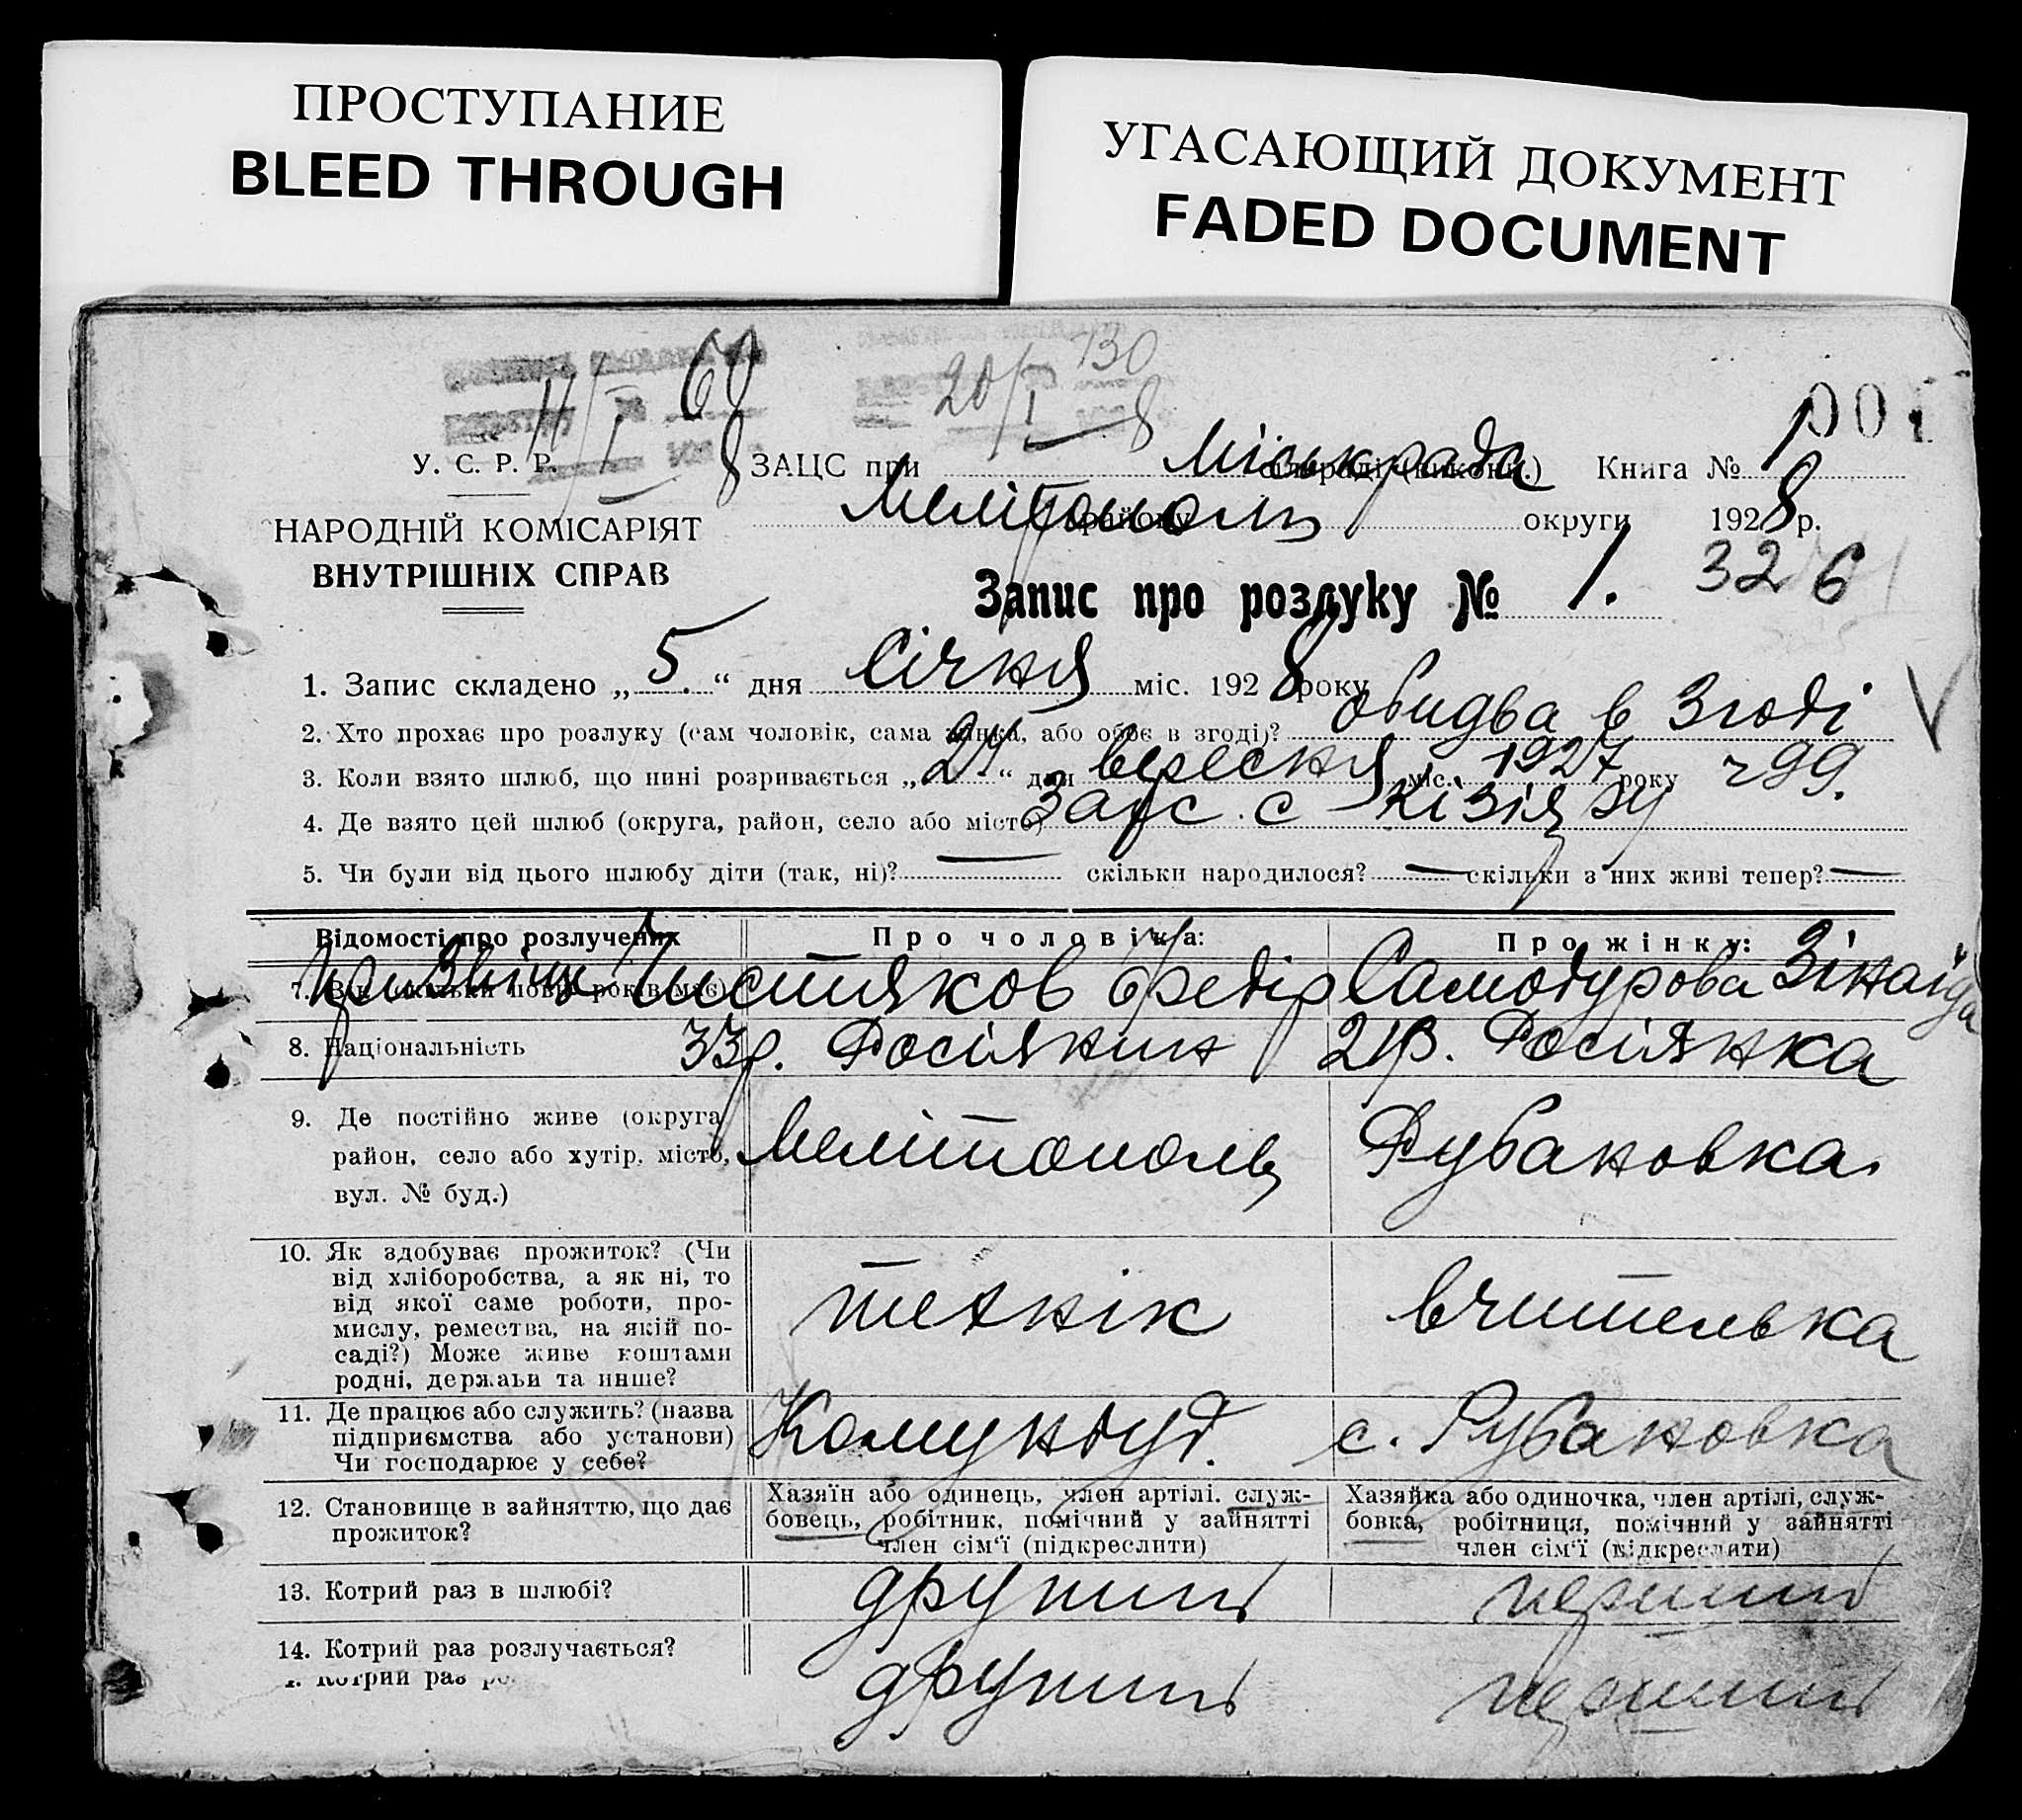 ПРОСТУПАНИЕ
BLEED THROUGH
УГАСАЮЩИЙ ДОКУМЕНТ
FADED DOCUMENT
11/I 8 68
20/I 8 730
001
У. С. Р. Р.
НАРОДНІЙ КОМІСАРІЯТ
ВНУТРІШНІХ СПРАВ
ЗАЦС при Міськрада сільраді (виконк.) Книга № 1
Мелітополь району округи 1928 р.
Запис про розлуку № 1. 326
1. Запис складено „5“ дня Січня міс. 1928 року
2. Хто прохає про розлуку (сам чоловік, сама жінка, або обоє в згоді)? обидва в Згоді
3. Коли взято шлюб, що нині розривається „24“ дня вересня міс. 1927 року ч 99.
4. Де взято цей шлюб (округа, район, село або місто) Загс. с Кізіяру
5. Чи були від цього шлюбу діти (так, ні)? — скільки народилося? — скільки з них живі тепер? —
Відомості про розлучених Про чоловіка: Про жінку:
Прізвіще Чистяков Федір Самодурова Зінаїда
7. Вік (скільки повн. років має)
8. Національність 33р. Росіянин 21р. Росіянка
9. Де постійно живе (округа, район, село або хутір, місто, вул. № буд.)
Мелітополь
Рубановка
10. Як здобуває прожиток? (Чи
від хліборобства, а як ні, то
від якої саме роботи, про-
мислу, ремества, на якій по-
саді?) Може живе коштами
родні, держави та инше?
технік
вчителька
11. Де працює або служить? (назва
підприємства або установи)
Чи господарює у себе?
Комунбуд.
с. Рубановка
12. Становище в зайняттю, що дає
прожиток?
Хазяїн або одинець, член артілі, служ-
бовець, робітник, помічний у зайнятті
член сім'ї (підкреслити)
Хазяйка або одиночка, член артілі, служ-
бовка, робітниця, помічний у зайнятті
член сім'ї (підкреслити)
13. Котрий раз в шлюбі? другий перший
14. Котрий раз розлучається? другий перший